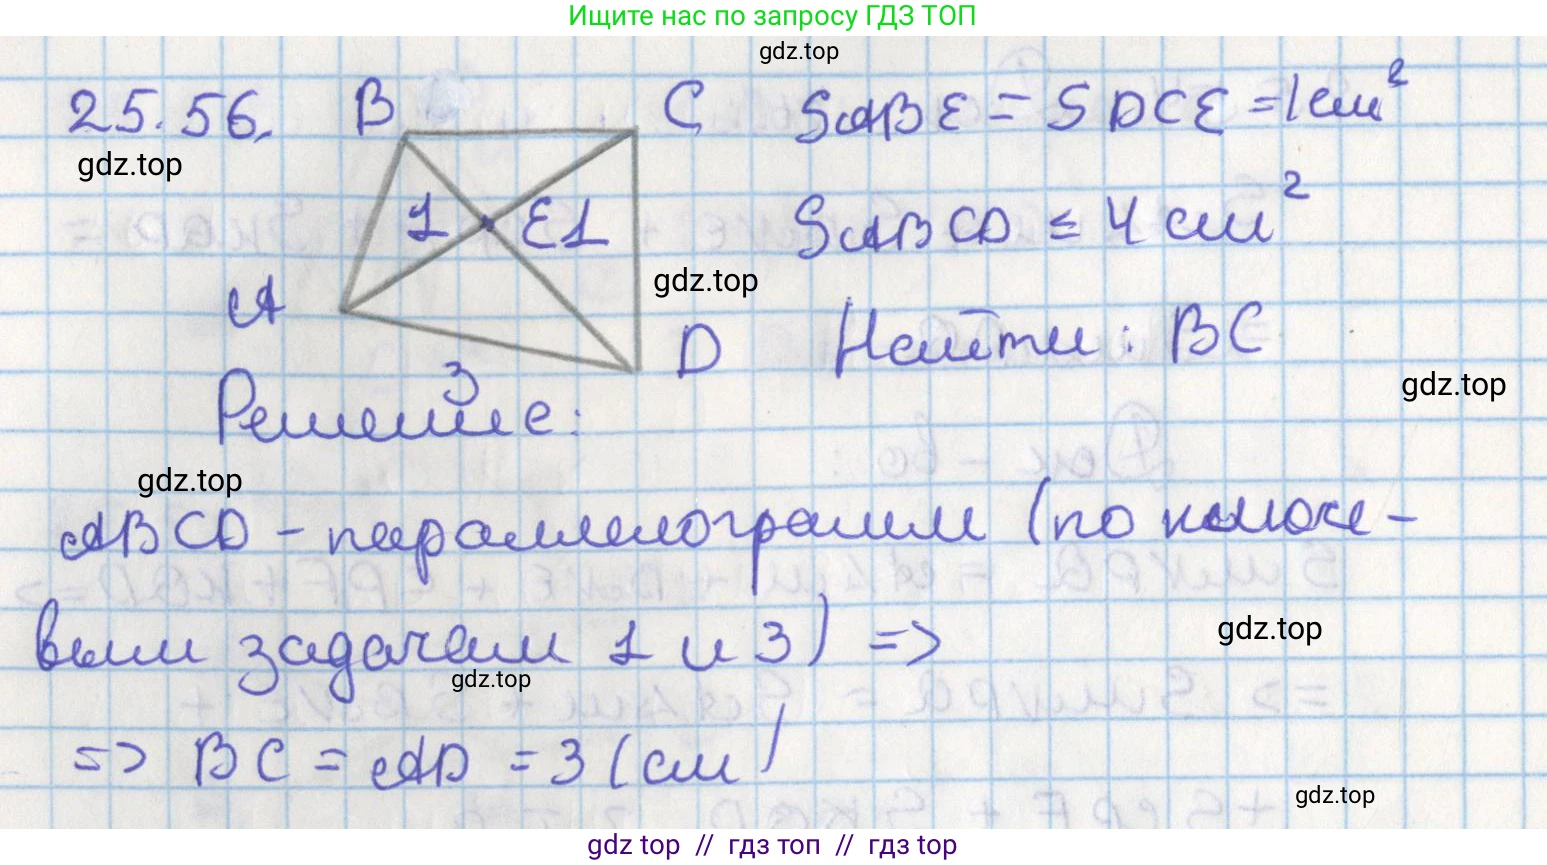 Ищите нас по запросу ГДЗ ТОП
gdz.top
25.56. B C SABE = SDCE = 1 см²
gdz.top
1 E 1 SABCD ≤ 4 см²
gdz.top
A D Найти: BC
3
gdz.top
Решение:
gdz.top
ABCD - параллелограмм (по ключе-
gdz.top
вым задачам 1 и 3) =>
gdz.top
=> BC = AD = 3 (см)
gdz.top
gdz top // гдз топ // gdz top